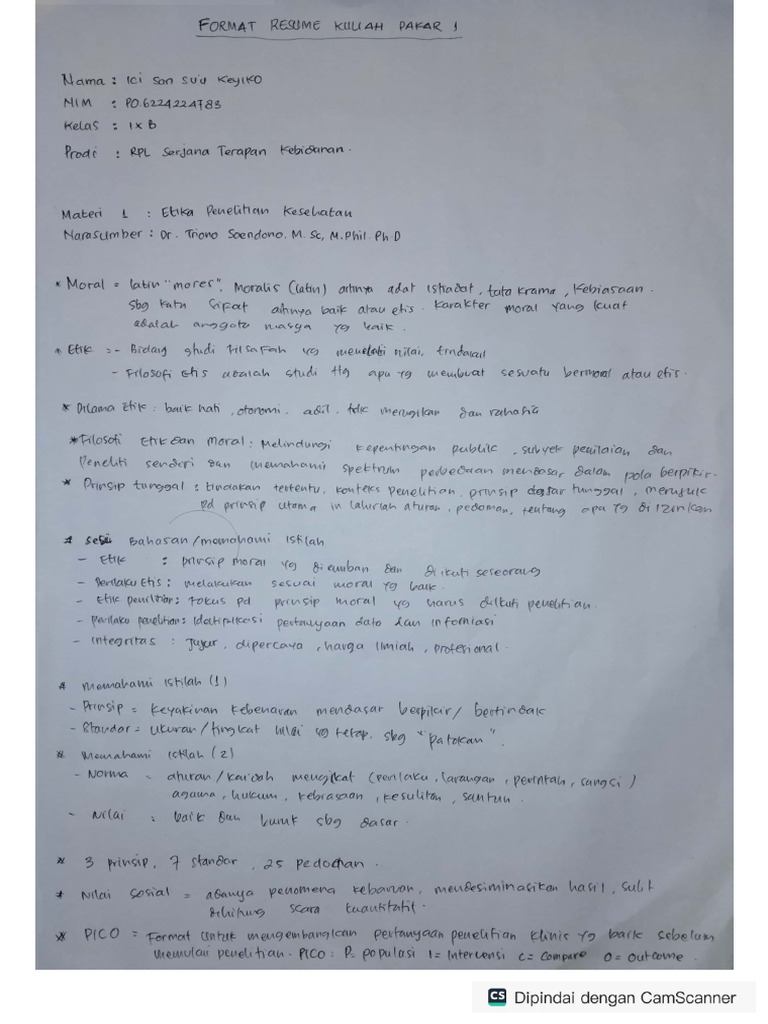 FORMAT RESUME KULIAH PAKAR 1
Nama : Ici San Suu Keyiko
NIM : PO.6224224783
Kelas : IX B
Prodi : RPL Serjana Terapan Kebidanan.
Materi 1 : Etika Penelitian Kesehatan
Narasumber : Dr. Triono Soendono, M.Sc, M.Phil. Ph D
* Moral = latin "mores". Moralis (latin) artinya adat istiadat, tata krama, kebiasaan.
sbg kata sifat artinya baik atau etis. Karakter moral yang kuat
adalah anggota masya yg baik.
* Etik = - Bidang studi Filsafah yg meneliti nilai, tindakan
- Filosofi Etis adalah studi ttg apa yg membuat sesuatu bermoral atau etis.
* Dilama Etik : baik hati, otonomi, adil, tdk merugikan dan rahasia
* Filosofi Etik dan moral : Melindungi kepentingan publik, subyek penilaian dan
Peneliti sendiri dan memahami spektrum perbedaan mendasar dalam pola berpikir.
* Prinsip tunggal : tindakan tertentu, konteks penelitian, prinsip dasar tunggal, merujuk
pd prinsip utama in lahirlah aturan, pedoman, tentang apa yg diizinkan
* sesi Bahasan/memahami istilah
- Etik : prinsip moral yg diemban dan diikuti seseorang
- Perilaku Etis : melakukan sesuai moral yg baik.
- Etik penelitian : Fokus pd prinsip moral yg harus diikuti penelitian.
- perilaku penelitian : Idetifikasi pertanyaan data dan informasi
- Integritas : Jujur, dipercaya, harga Ilmiah, profesional.
* memahami istilah (1)
- Prinsip = keyakinan kebenaran mendasar berpikir/ bertindak
- Standar = ukuran/tingkat nilai yg tetap, sbg "patokan".
* Memahami istilah (2)
- Norma = aturan/kaidah mengikat (perilaku, larangan, perintah, sangsi)
agama, hukum, kebiasaan, kesulitan, santun.
- Nilai : baik dan buruk sbg dasar.
* 3 prinsip, 7 standar, 25 pedoman.
* Nilai sosial = adanya penomena kebaruan, mendesiminasikan hasil, sulit
dihitung scara kuantitatif.
* PICO = Format untuk mengembangkan pertanyaan penelitian klinis yg baik sebelum
memulai penelitian. PICO : P= populasi I= Intervensi C= Compare O= Outcome.
CS Dipindai dengan CamScanner